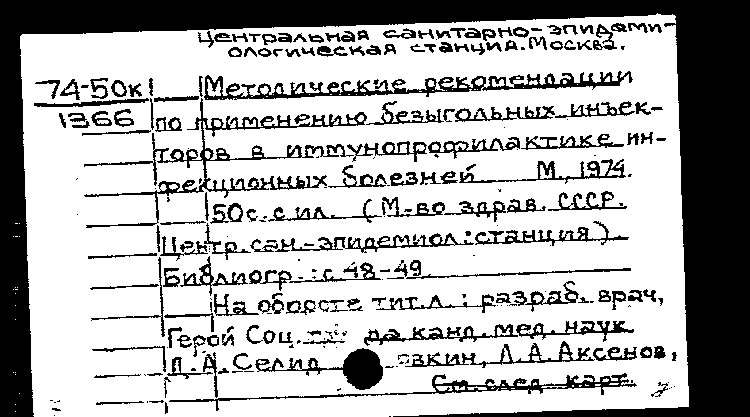 Центральная санитарно-эпидеми-
ологическая станция. Москва.
74-50к Методические рекомендации
1366 по применению безыгольных инъек-
торов в иммунопрофилактике ин-
фекционных болезней М., 1974.
50с. с ил. (М-во здрав. СССР.
Центр. сан.-эпидемиол: станция).
Библиогр.: с 48-49
На обороте тит. л.: разраб. врач,
Герой Соц. да канд. мед. наук
А. Селид овкин, Л. А. Аксенов,
См. след карт.